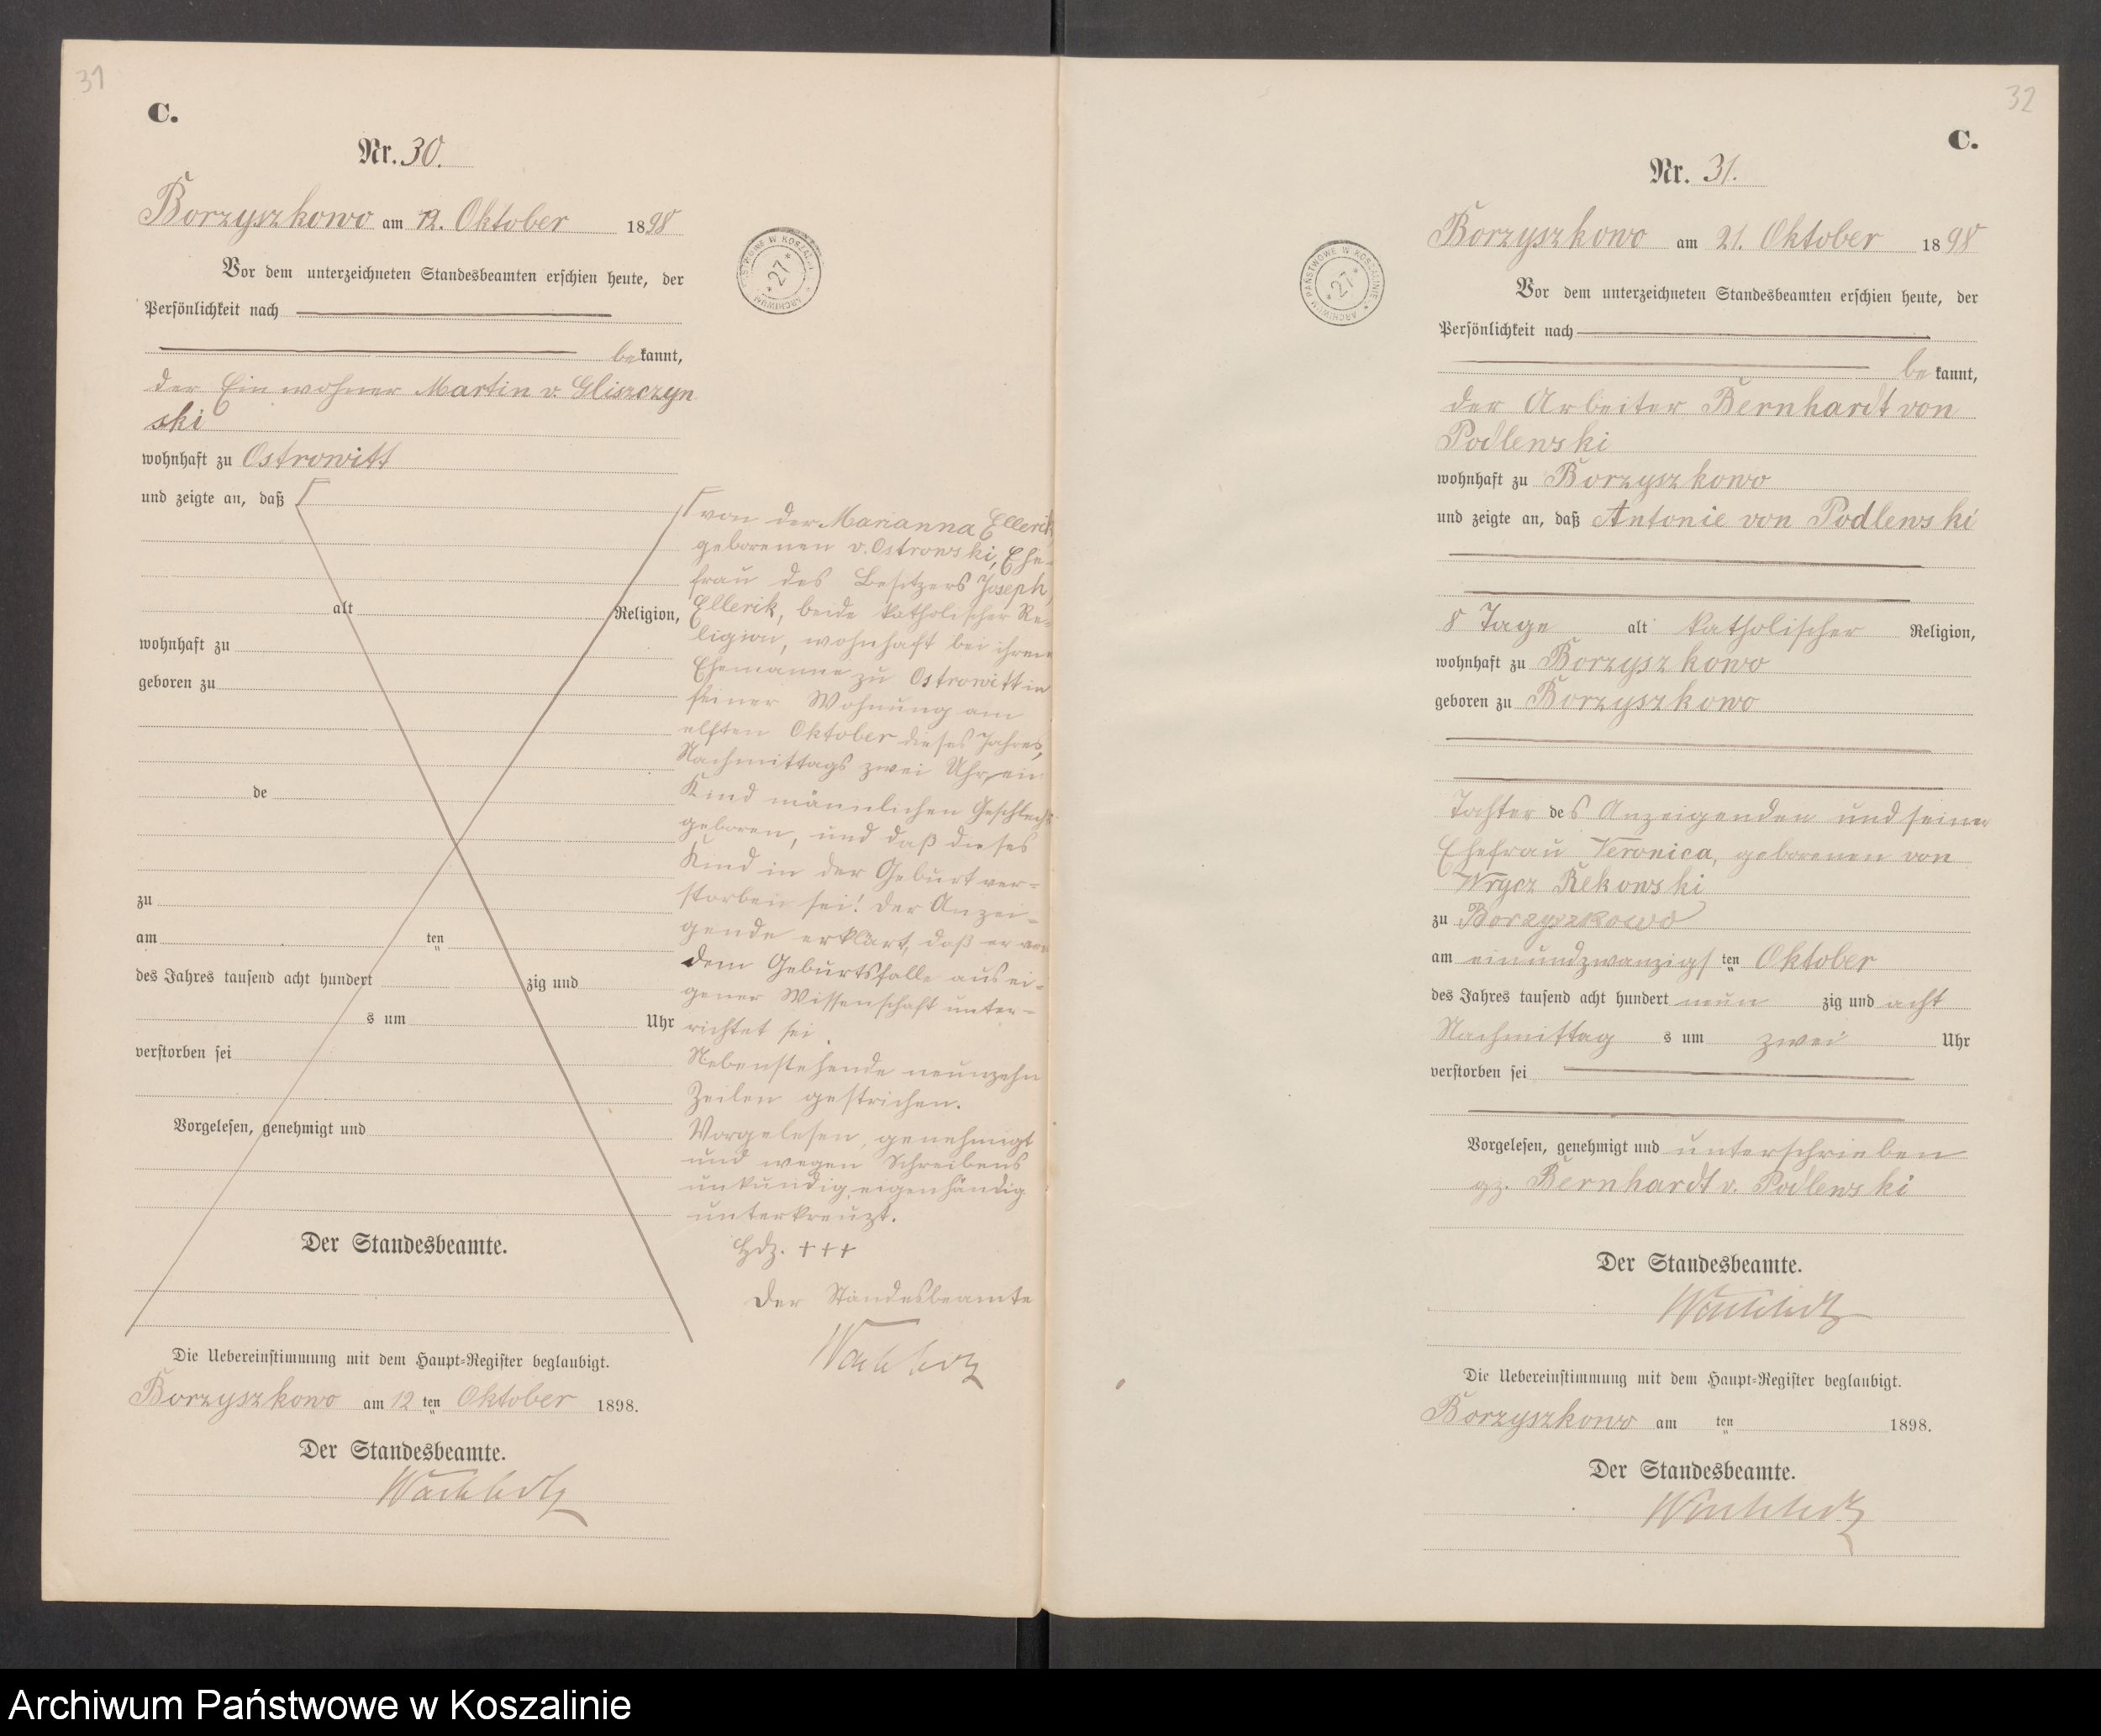 31
C.
Nr. 30.
Borzyszkowo am 12. Oktober 1898
Vor dem unterzeichneten Standesbeamten erschien heute, der
Persönlichkeit nach
bekannt,
der Einwohner Martin v. Gliszczyn
ski
wohnhaft zu Ostrowitt
und zeigte an, daß
alt Religion,
wohnhaft zu
geboren zu
de
zu
am ten
des Jahres tausend acht hundert zig und
s um Uhr
verstorben sei
Vorgelesen, genehmigt und
Der Standesbeamte.
Die Uebereinstimmung mit dem Haupt-Register beglaubigt.
Borzyszkowo am 12 ten Oktober 1898.
Der Standesbeamte.
Wachholz
ARCHIWUM PAŃSTWOWE W KOSZALINIE
* 27 *
von der Marianna Ellerik
geborenen v. Ostrowski, Ehe-
frau des Besitzers Joseph
Ellerik, beide katholischer Re-
ligion, wohnhaft bei ihrem
Ehemanne zu Ostrowitt in
seiner Wohnung am
elften Oktober dieses Jahres,
Nachmittags zwei Uhr, ein
Kind männlichen Geschlechts
geboren, und daß dieses
Kind in der Geburt ver-
storben sei! Der Anzei-
gende erklärt, daß er von
dem Geburtsfalle aus ei-
gener Wissenschaft unter-
richtet sei.
Nebenstehende neunzehn
Zeilen gestrichen.
Vorgelesen, genehmigt
und wegen Schreibens
unkundig eigenhändig
unterkreuzt.
Hdz. +++
Der Standesbeamte
Wachholz
32
C.
Nr. 31.
Borzyszkowo am 21. Oktober 1898
ARCHIWUM PAŃSTWOWE W KOSZALINIE
* 27 *
Vor dem unterzeichneten Standesbeamten erschien heute, der
Persönlichkeit nach
bekannt,
der Arbeiter Bernhardt von
Podlewski
wohnhaft zu Borzyszkowo
und zeigte an, daß Antonie von Podlewski
8 Tage alt katholischer Religion,
wohnhaft zu Borzyszkowo
geboren zu Borzyszkowo
Tochter des Anzeigenden und seiner
Ehefrau Veronica, geborenen von
Wrycz Rekowski
zu Borzyszkowo
am einundzwanzigsten Oktober
des Jahres tausend acht hundert neun zig und acht
Nachmittag s um zwei Uhr
verstorben sei
Vorgelesen, genehmigt und unterschrieben
gz. Bernhardt v. Podlewski
Der Standesbeamte.
Wachholz
Die Uebereinstimmung mit dem Haupt-Register beglaubigt.
Borzyszkowo am ten 1898.
Der Standesbeamte.
Wachholz
Archiwum Państwowe w Koszalinie